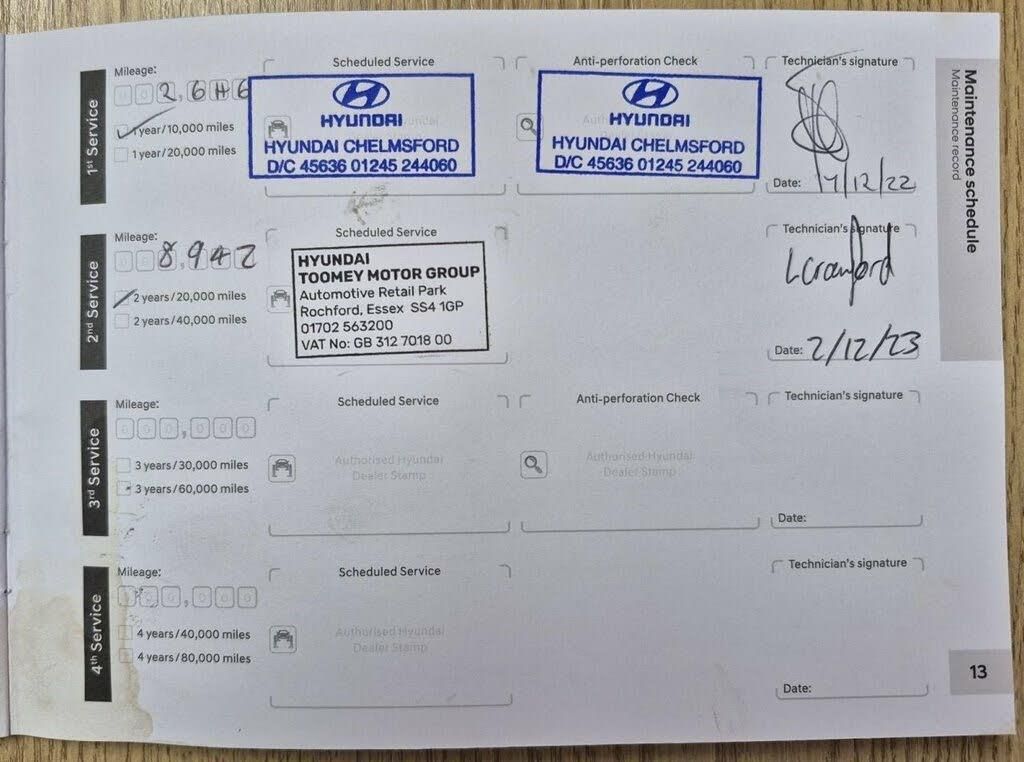 Maintenance schedule
Maintenance record
1st Service
Mileage:
2,646
1 year/10,000 miles
1 year/20,000 miles
Scheduled Service
HYUNDAI
HYUNDAI CHELMSFORD
D/C 45636 01245 244060
Anti-perforation Check
HYUNDAI
HYUNDAI CHELMSFORD
D/C 45636 01245 244060
Technician's signature
Date: 17/12/22
2nd Service
Mileage:
8,942
2 years/20,000 miles
2 years/40,000 miles
Scheduled Service
HYUNDAI
TOOMEY MOTOR GROUP
Automotive Retail Park
Rochford, Essex SS4 1GP
01702 563200
VAT No: GB 312 7018 00
Technician's signature
L Crawford
Date: 2/12/23
3rd Service
Mileage:
000,000
3 years/30,000 miles
3 years/60,000 miles
Scheduled Service
Authorised Hyundai
Dealer Stamp
Anti-perforation Check
Authorised Hyundai
Dealer Stamp
Technician's signature
Date:
4th Service
Mileage:
000,000
4 years/40,000 miles
4 years/80,000 miles
Scheduled Service
Authorised Hyundai
Dealer Stamp
Technician's signature
Date:
13